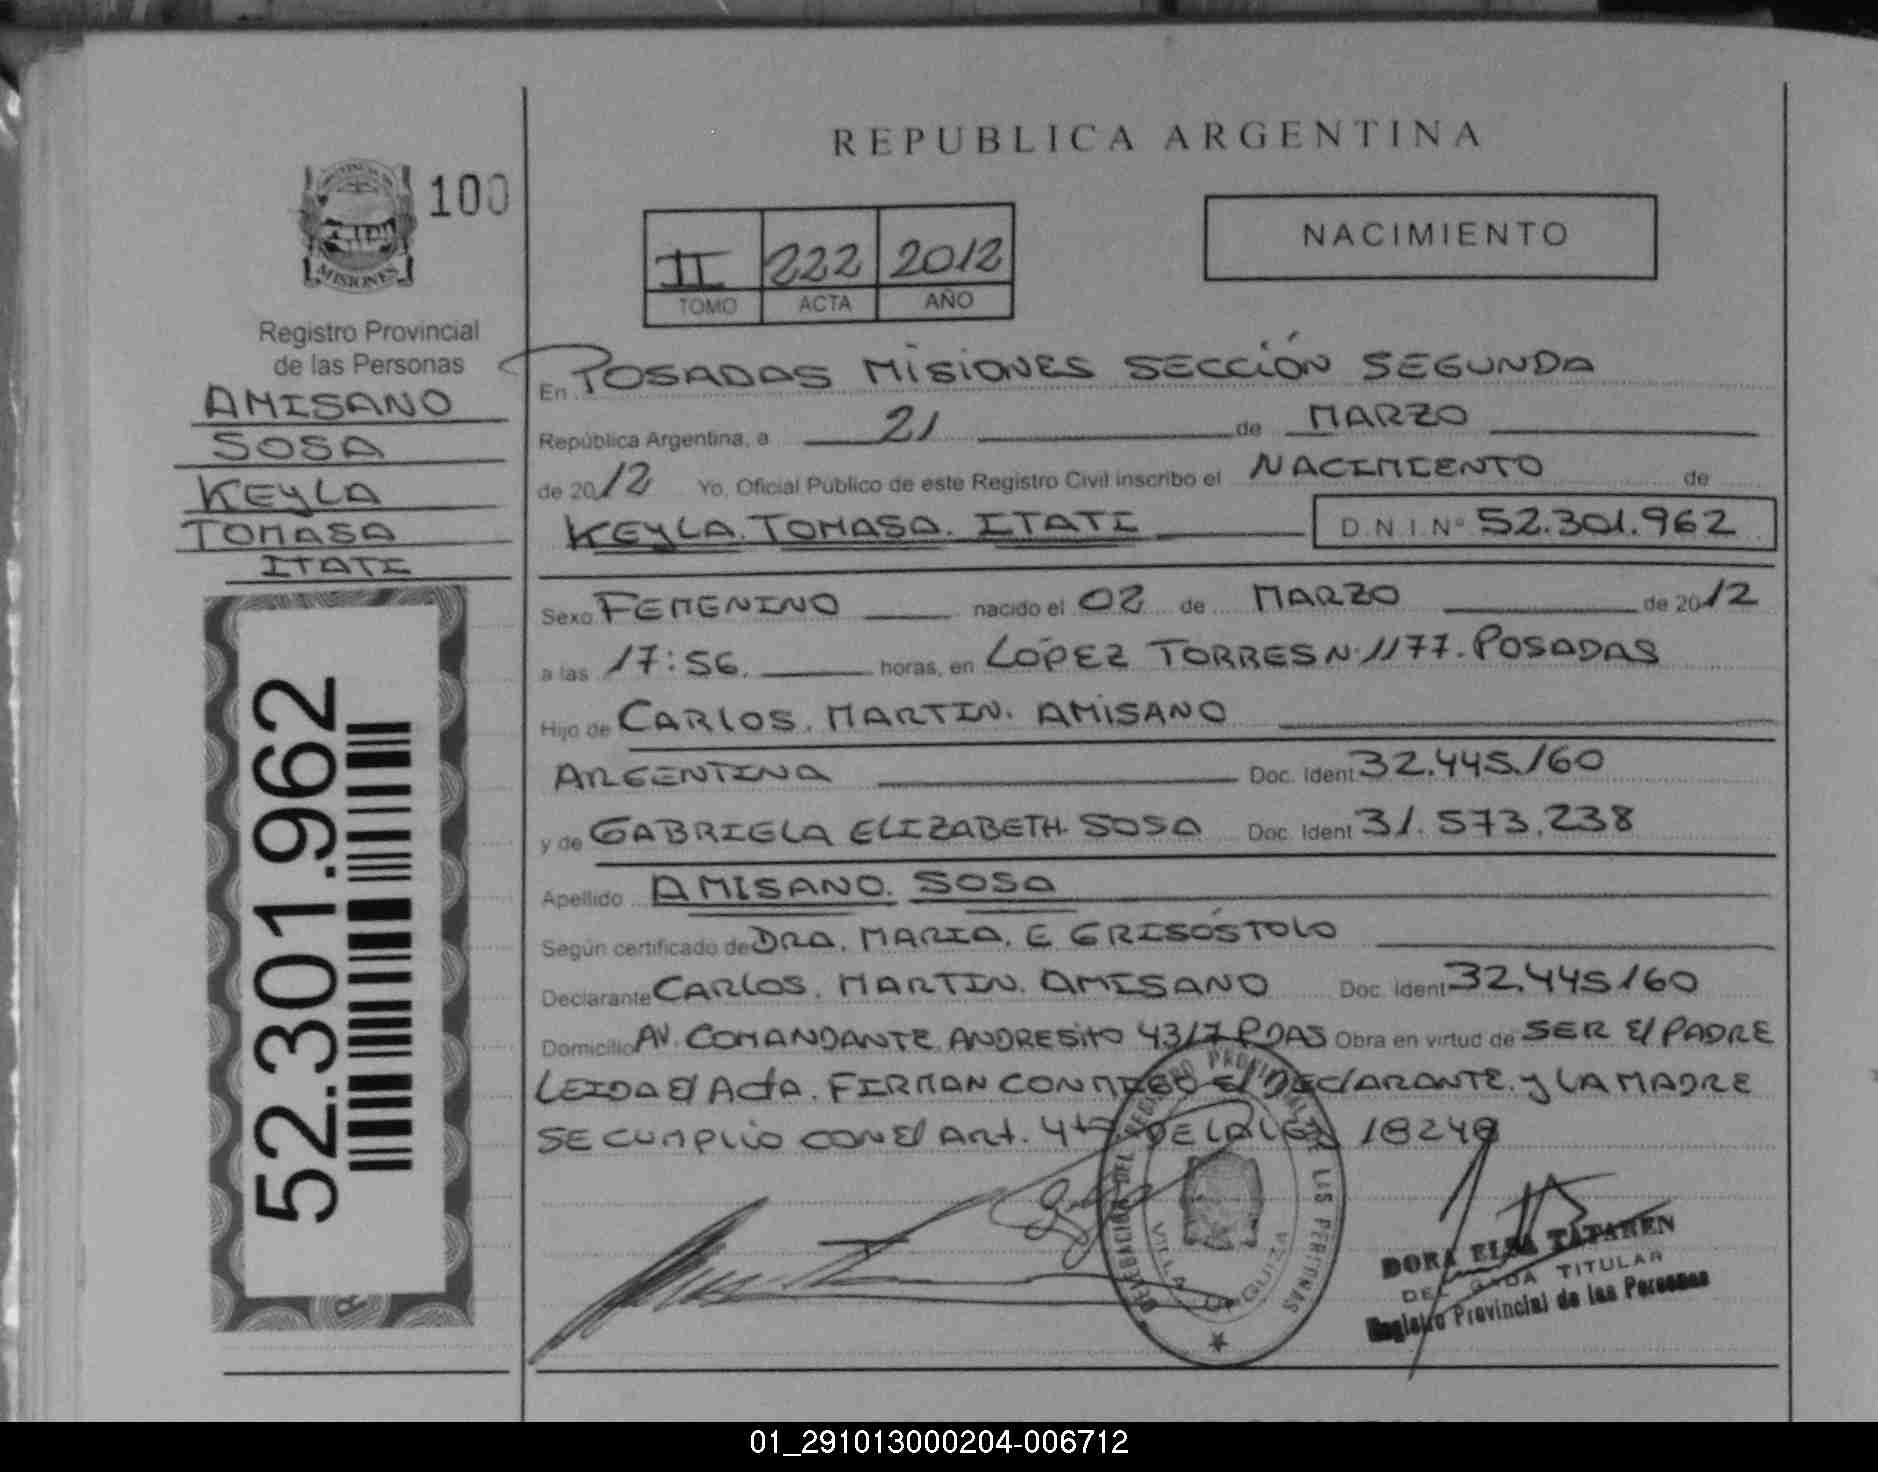 REPUBLICA ARGENTINA
100
MISIONES
Registro Provincial
de las Personas
AMISANO
SOSA
KEYLA
TOMASA
ITATI
52.301.962
II 222 2012
TOMO ACTA AÑO
NACIMIENTO
En POSADAS MISIONES SECCIÓN SEGUNDA
República Argentina, a 21 de MARZO
de 2012 Yo, Oficial Público de este Registro Civil inscribo el NACIMIENTO de
KEYLA. TOMASA. ITATI D.N.I.Nº 52.301.962
Sexo FEMENINO nacido el 02 de MARZO de 2012
a las 17:56. horas, en LÓPEZ TORRES N. 1177. POSADAS
Hijo de CARLOS. MARTIN. AMISANO
ARGENTINA Doc. Ident 32.445.160
y de GABRIELA ELIZABETH. SOSA Doc. Ident 31.573.238
Apellido AMISANO. SOSA
Según certificado de DRA. MARIA. E GRISÓSTOLO
Declarante CARLOS. MARTIN. AMISANO Doc. Ident 32.445160
Domicilio AV. COMANDANTE ANDRESITO 4317 PDAS Obra en virtud de SER El PADRE
LEIDA El ActA. FIRMAN CONMIGO El DEClARANTE. y LA MADRE
SE CUMPLIO CON El Art. 4to DE LA LEY 18248
DELEGACION DEL REGISTRO PROVINCIAL DE LAS PERSONAS
VILLA URQUIZA
DORA ELSA TATAREN
DELEGADA TITULAR
Registro Provincial de las Personas
01_291013000204-006712